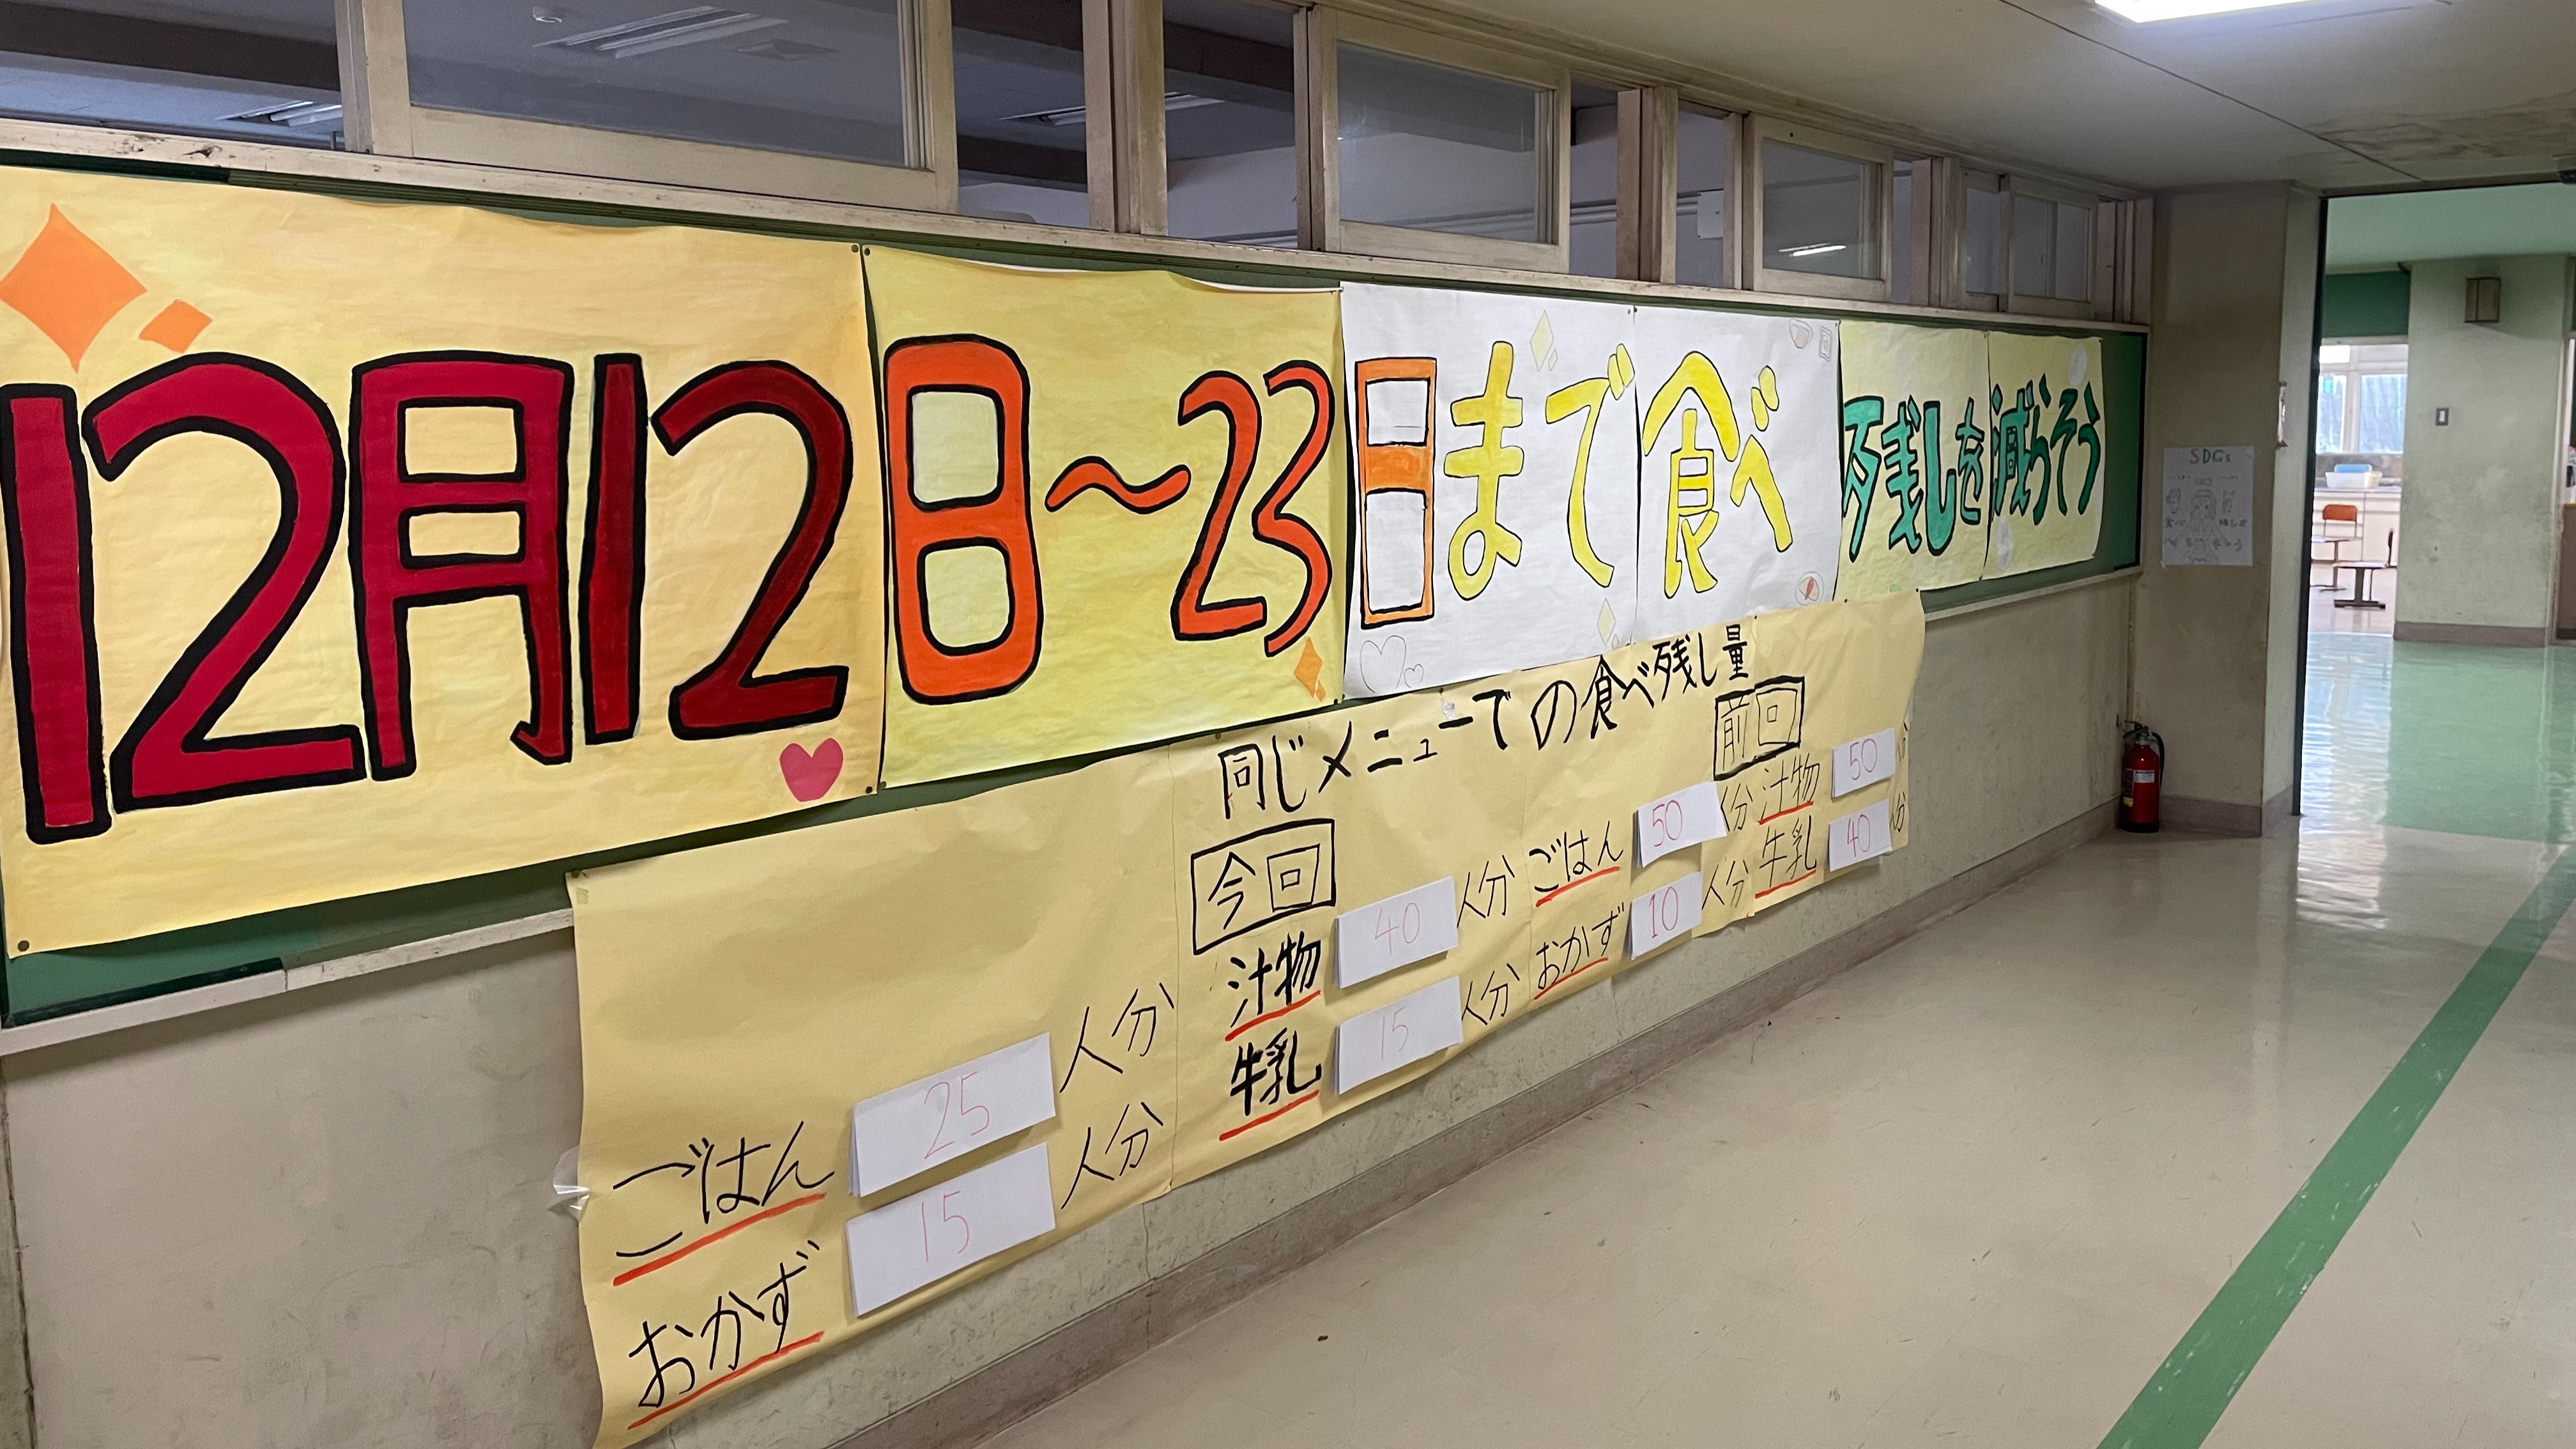 12月12日～23日まで食べ残しを減らそう
同じメニューでの食べ残し量
今回
ごはん 25 人分 汁物 40 人分
おかず 15 人分 牛乳 15 人分
前回
ごはん 50 人分 汁物 50 分
おかず 10 人分 牛乳 40 人分
SDGs